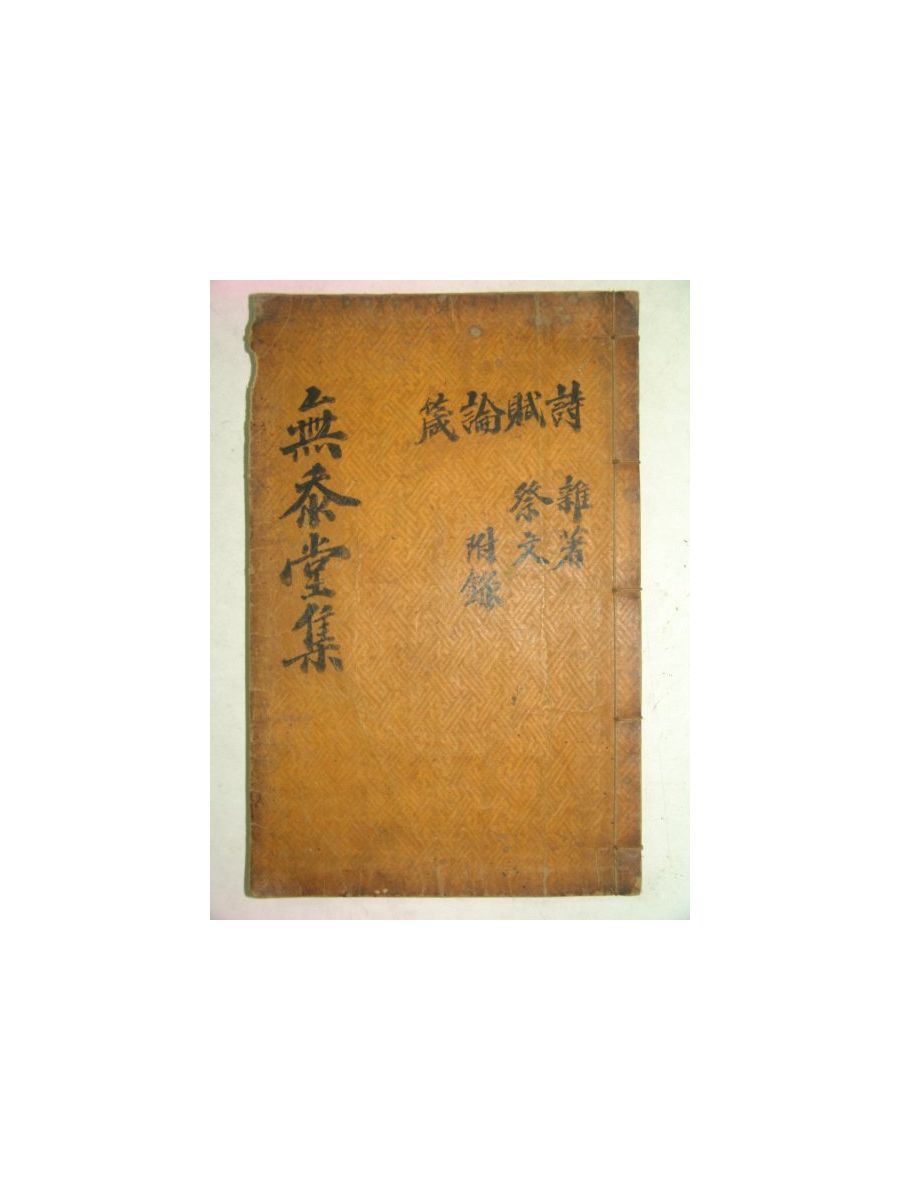 詩 賦 論 箴
雜著
祭文
附錄
無忝堂集